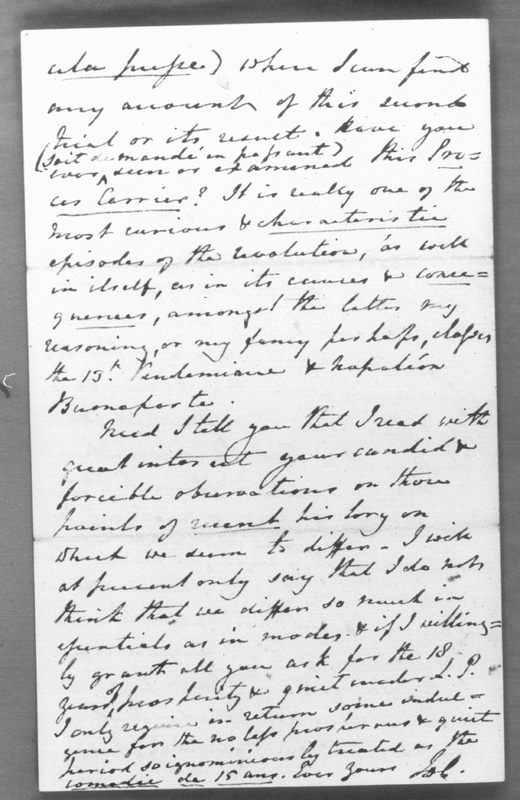 ula presse) where I can find
any account of this second
trial or its result. Have you
(soit demandé en passant)
ever seen or examined this Pro=
cès Carrier? It is really one of the
most curious & characteristic
episodes of the revolution, as well
in itself, as in its causes & conse=
quences, amongst the latter my
reasoning, or my fancy perhaps, classes
the 13th Vendemiaire & Napoléon
Buonaparte.
Need I tell you that I read with
great interest your candid &
forcible observations on those
points of recent history on
which we seem to differ - I will
at present only say that I do not
think that we differ so much in
essentials as in modes. & if I willing=
ly grant all you ask for the 18
years of prosperity & quiet under L. P.
I only require in return some indul=
gence for the no less prosperous & quiet
period so ignominiously treated as the
comedie de 15 ans. Ever yours